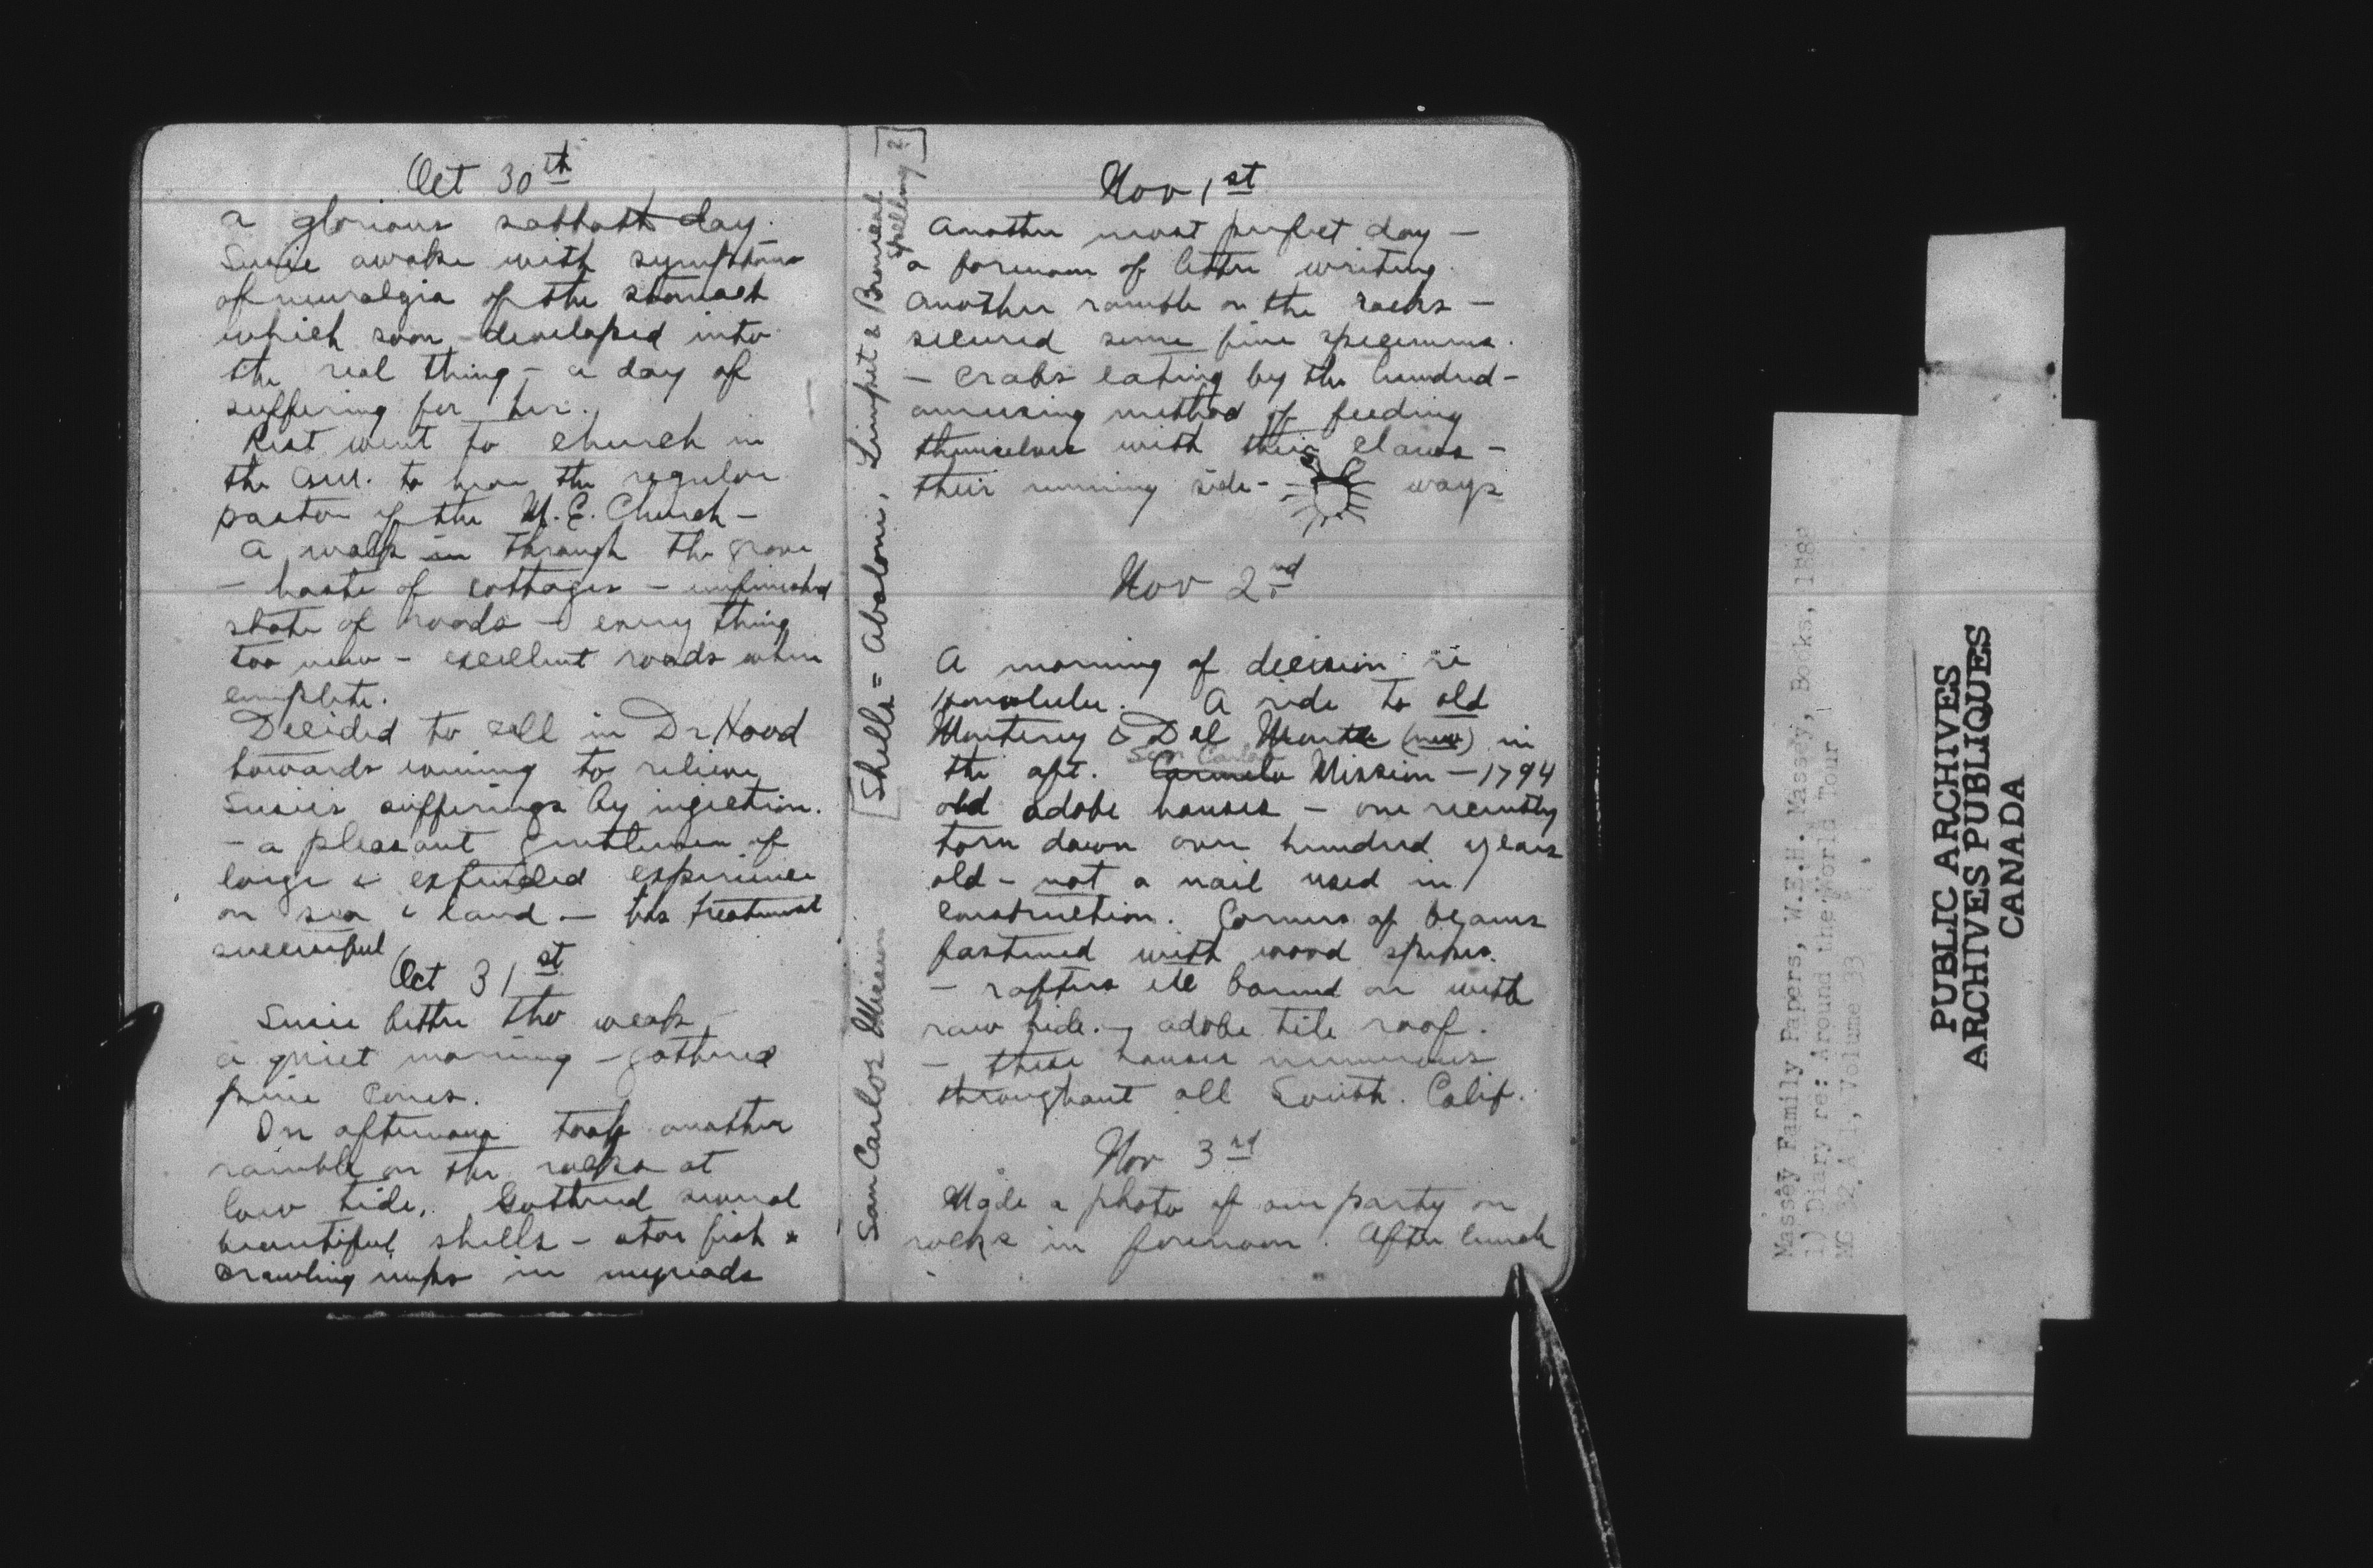 Oct 30th
a glorious sabbath day.
Susie awoke with symptoms
of neuralgia of the stomach
which soon developed into
the real thing - a day of
suffering for her.
Rest went to church in
the a.m. to hear the regular
pastor of the M.E. Church -
A walk in through the grove
- haste of cottages - unfinished
state of roads - every thing
too new - excellent roads when
complete.
Decided to call in Dr Hood
towards evening to relieve
Susie's sufferings by injection.
- a pleasant gentleman of
large & extended experience
on sea & land - his treatment
successful
Oct 31st
Susie better tho weak -
a quiet morning - gathered
pine cones.
In afternoon took another
ramble on the rocks at
low tide. Gathered several
beautiful shells - star fish &
crawling in myriads
[Shells = Abaloni, Limpet &
spelling ?]
San Carlos Mission
Nov 1st
Another most perfect day -
a forenoon of letter writing.
Another ramble on the rocks -
secured some fine specimens.
- Crabs eating by the hundred -
amusing method of feeding
themselves with their claws -
their running side- ways
Nov 2nd
A morning of decision re
Honolulu. A ride to old
Monterey & Del Monte (new) in
San Carlos
the aft. Carmelo Mission - 1794
old adobe houses - one recently
torn down over hundred years
old - not a nail used in
construction. Corners of beams
fastened with wood
- rafters etc bound on with
raw hide. - adobe tile roof.
- these houses numerous
throughout all South. Calif.
Nov 3rd
Made a photo of our party on
rocks in forenoon. After lunch
Massey Family Papers, W.E.H. Massey, Books, 188
1) Diary re: Around the World Tour
MG 32 A 1, Volume 33
PUBLIC ARCHIVES
ARCHIVES PUBLIQUES
CANADA